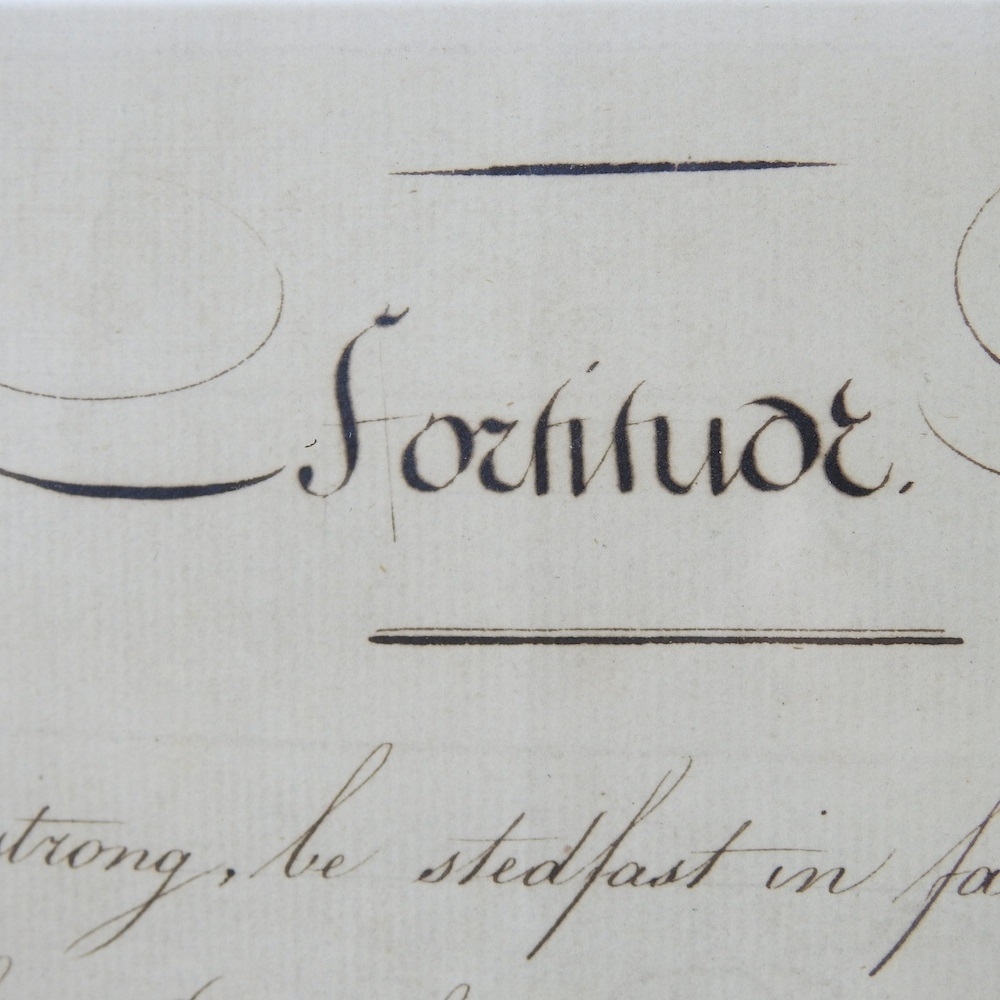 Fortitude.
strong, be stedfast in